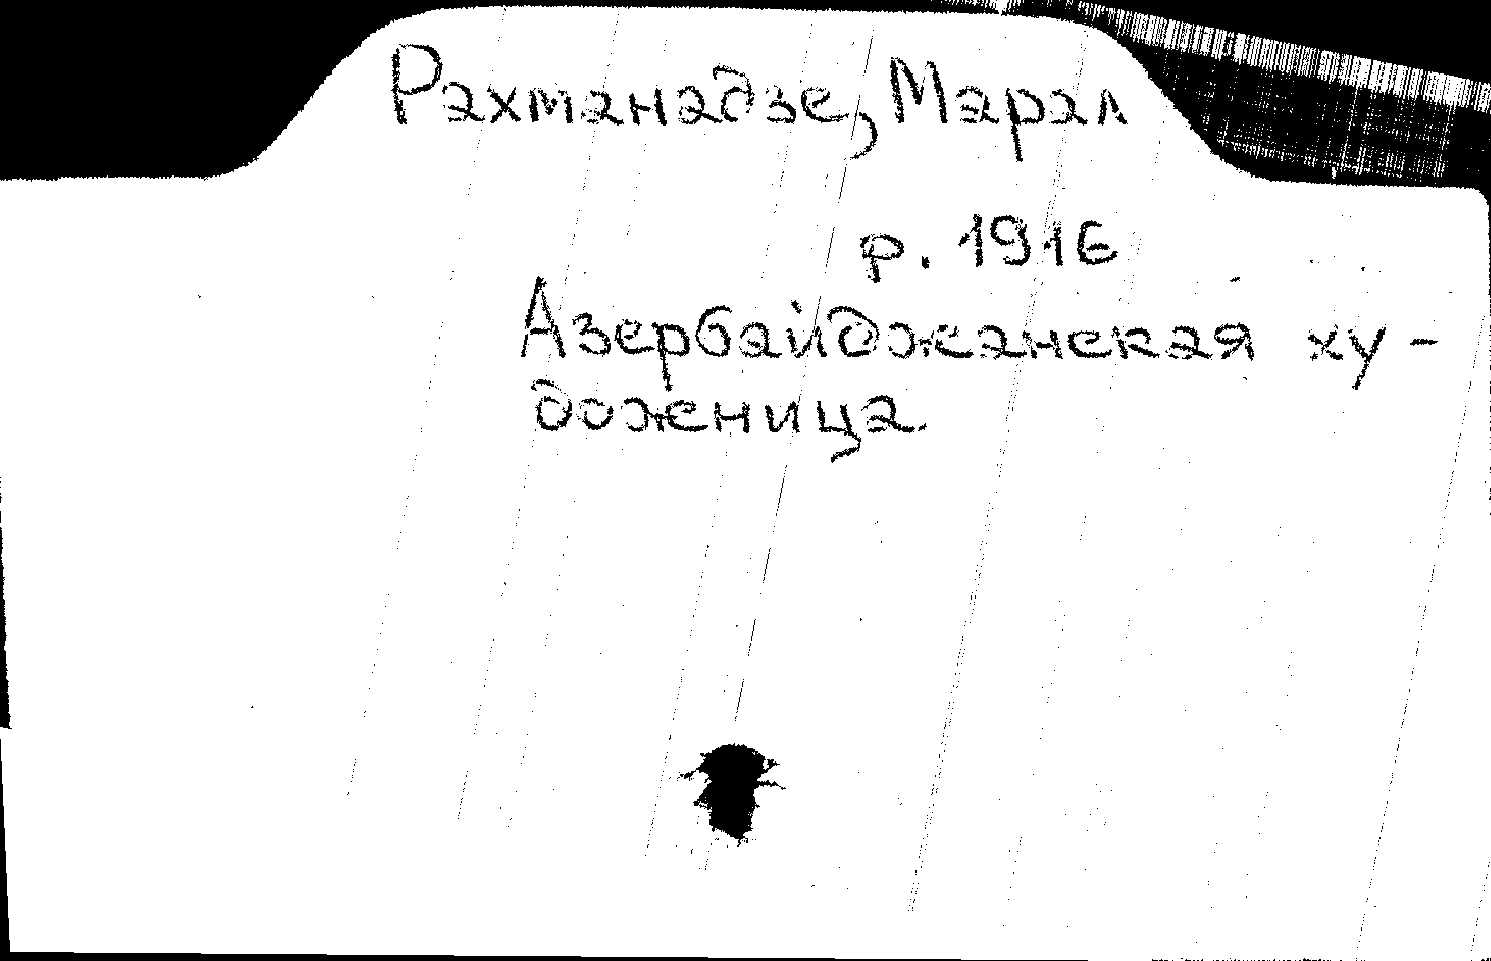 Рахманадзе, Марал
р. 1916
Азербайджанская ху-
доженица.